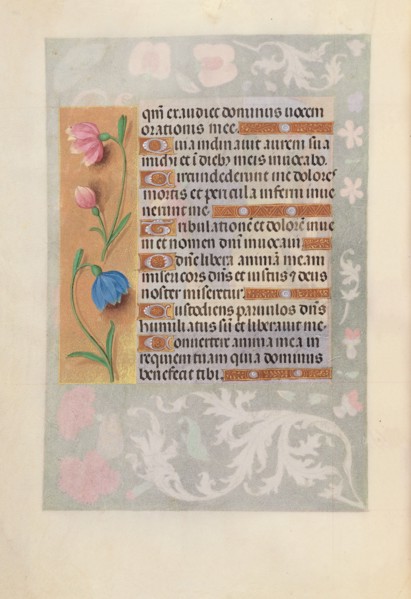 qm̄ exaudiet dominus uocem
orationis mee.
Quia inclinauit aurem sua
michi et ī dieb⁹ meis inuocabo.
Circundederunt me dolores
mortis et pericula inferni inue
nerunt me.
Tribulationē et dolorē inue
ni et nomen dnī inuocaui.
O dn̄e libera animā meam
misericors dn̄s et iustus ⁊ deus
noster miseretur.
Custodiens paruulos dn̄s
humiliatus sū et liberauit me.
Conuertere anima mea in
requiem tuam quia dominus
benefecit tibi.